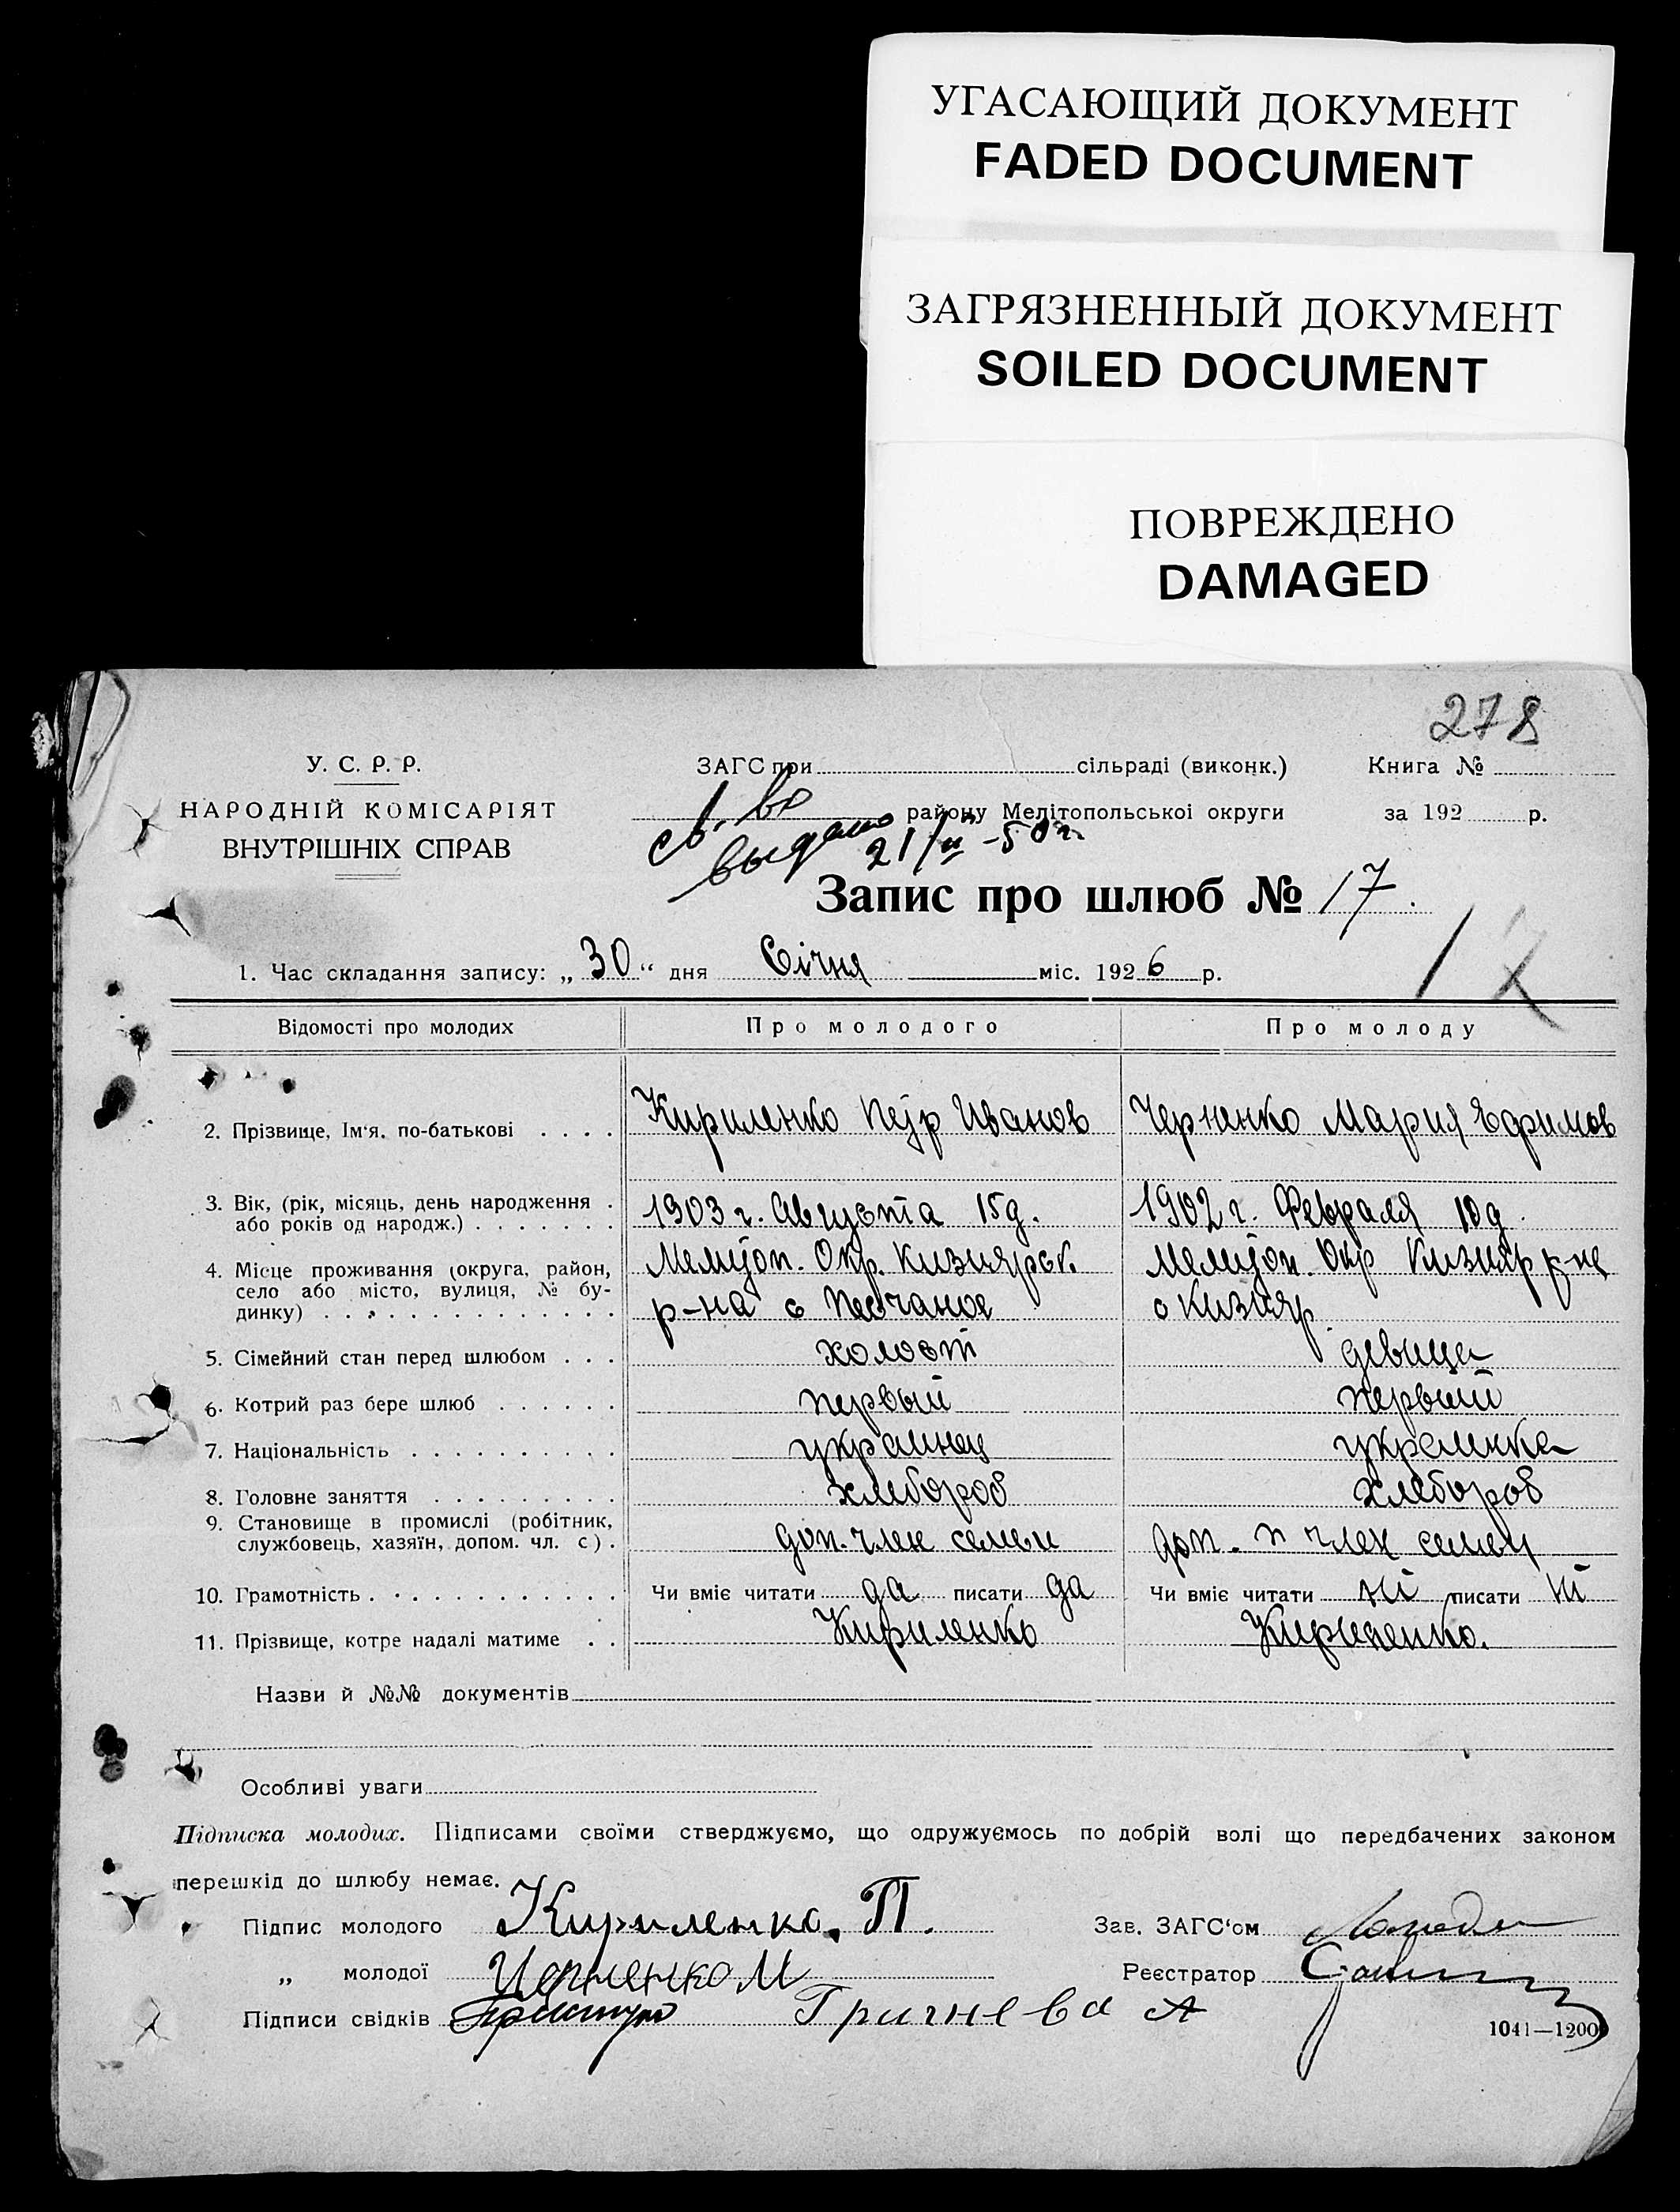 УГАСАЮЩИЙ ДОКУМЕНТ
FADED DOCUMENT
ЗАГРЯЗНЕННЫЙ ДОКУМЕНТ
SOILED DOCUMENT
ПОВРЕЖДЕНО
DAMAGED
278
У. С. Р. Р.
НАРОДНІЙ КОМІСАРІЯТ
ВНУТРІШНІХ СПРАВ
ЗАГС при сільраді (виконк.)
району Мелітопольської округи
Книга №
за 192 р.
св-во
выдано 21/II-50 г.
Запис про шлюб № 17.
1. Час складання запису: „30“ дня Січня міс. 1926 р.
Відомості про молодих Про молодого Про молоду
2. Прізвище, Ім'я, по-батькові . . . . Кириленко Петр Иванов Черненко Мария Ефимов
3. Вік, (рік, місяць, день народження . або років од народж.) . . . . . . . 1903 г. Августа 15д. 1902 г. Февраля 10д.
4. Місце проживання (округа, район, село або місто, вулиця, № будинку) . . . . . . . . . . . . . Мелитоп. Окр. Кизиярск. р-на с Песчаное Мелитоп. Окр Кизияр р-на с Кизияр
5. Сімейний стан перед шлюбом . . . холост девица
6. Котрий раз бере шлюб . . . . . . первый первый
7. Національність . . . . . . . . . . украинец украинка
8. Головне заняття . . . . . . . . . хлебороб хлебороб
9. Становище в промислі (робітник, службовець, хазяїн, допом. чл. с) . доп. член семьи доп. член семьи
10. Грамотність . . . . . . . . . . . Чи вміє читати да писати да Чи вміє читати ні писати ні
11. Прізвище, котре надалі матиме . . Кириленко Кириленко.
Назви й №№ документів
Особливі уваги
Підписка молодих. Підписами своїми стверджуємо, що одружуємось по добрій волі що передбачених законом
перешкід до шлюбу немає.
Підпис молодого Кириленко. П. Зав. ЗАГС'ом
„ молодої Черненко М Реєстратор
Підписи свідків Гричнева А
1041—1200